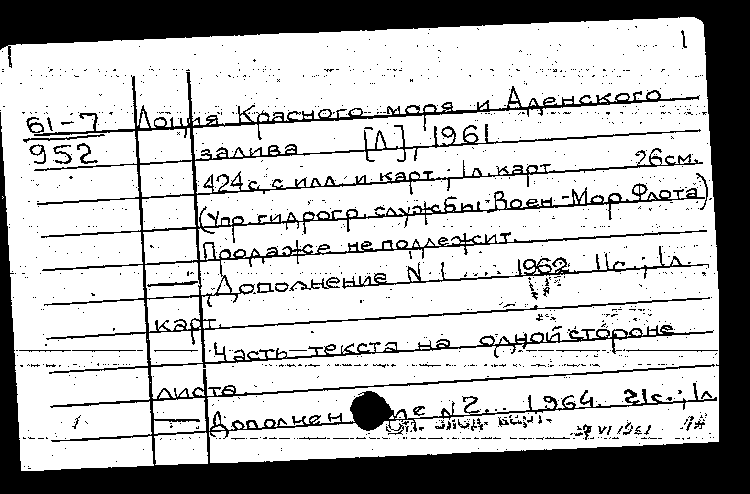 1
61-7 Лоция Красного моря и Аденского
952 залива [Л], 1961
424 с, с илл. и карт.; 1л. карт. 26см.
(Упр. гидрогр. службы Воен.-Мор. Флота)
Продаже не подлежит.
— Дополнение N 1 .... 1962 11с.; 1л.
карт.
Часть текста на одной стороне
листа.
— Дополнен ие N2... 1964. 21с.; 1л